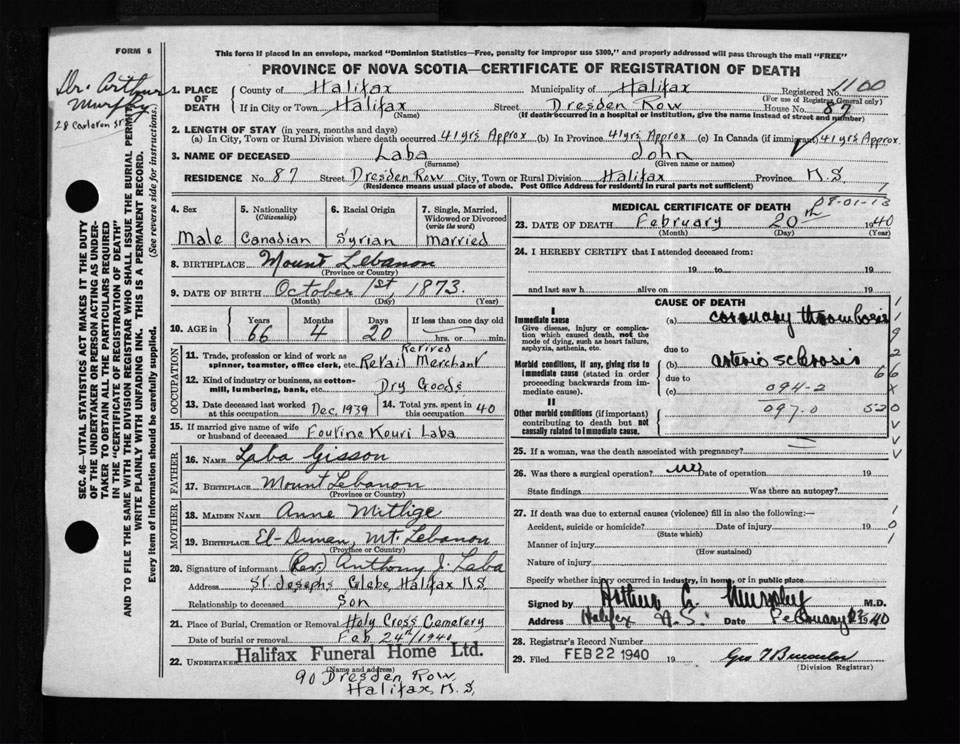 FORM 6
This form if placed in an envelope, marked "Dominion Statistics—Free, penalty for improper use $300," and properly addressed will pass through the mail "FREE"
PROVINCE OF NOVA SCOTIA—CERTIFICATE OF REGISTRATION OF DEATH
Dr. Arthur
Murphy
28 Carleton St
SEC. 46—VITAL STATISTICS ACT MAKES IT THE DUTY
OF THE UNDERTAKER OR PERSON ACTING AS UNDER-
TAKER TO OBTAIN ALL THE PARTICULARS REQUIRED
IN THE "CERTIFICATE OF REGISTRATION OF DEATH"
AND TO FILE THE SAME WITH THE DIVISION REGISTRAR WHO SHALL ISSUE THE BURIAL PERMIT
WRITE PLAINLY WITH UNFADING INK. THIS IS A PERMANENT RECORD.
Every item of information should be carefully supplied. (See reverse side for instructions.)
1. PLACE OF DEATH County of Halifax Municipality of Halifax Registered No. 1100
(For use of Registrar General only)
If in City or Town Halifax Street Dresden Row House No. 87
(Name) (If death occurred in a hospital or institution, give the name instead of street and number)
2. LENGTH OF STAY (in years, months and days)
(a) In City, Town or Rural Division where death occurred 41 yrs Approx (b) In Province 41 yrs Approx (c) In Canada (if immigrant) 41 yrs Approx.
3. NAME OF DECEASED Laba John
(Surname) (Given name or names)
RESIDENCE No. 87 Street Dresden Row City, Town or Rural Division Halifax Province N.S.
(Residence means usual place of abode. Post Office Address for residents in rural parts not sufficient)
4. Sex Male
5. Nationality (Citizenship) Canadian
6. Racial Origin Syrian
7. Single, Married, Widowed or Divorced (write the word) Married
8. BIRTHPLACE Mount Lebanon
(Province or Country)
9. DATE OF BIRTH October 1st, 1873.
(Month) (Day) (Year)
10. AGE in Years 66 Months 4 Days 20 If less than one day old hrs. or min.
OCCUPATION
11. Trade, profession or kind of work as spinner, teamster, office clerk, etc. Retired Retail Merchant
12. Kind of industry or business, as cotton-mill, lumbering, bank, etc. Dry Goods
13. Date deceased last worked at this occupation Dec. 1939 14. Total yrs. spent in this occupation 40
15. If married give name of wife or husband of deceased Fouline Kouri Laba
FATHER
16. NAME Laba Gisson
17. BIRTHPLACE Mount Lebanon
(Province or Country)
MOTHER
18. MAIDEN NAME Anne Mitlige
19. BIRTHPLACE El-Diman, Mt. Lebanon
(Province or Country)
20. Signature of informant (Rev.) Anthony J. Laba
Address St. Josephs Glebe, Halifax N.S.
Relationship to deceased Son
21. Place of Burial, Cremation or Removal Holy Cross Cemetery
Date of burial or removal Feb 24th/1940
22. UNDERTAKER Halifax Funeral Home Ltd.
(Name and address)
90 Dresden Row
Halifax, N.S.
MEDICAL CERTIFICATE OF DEATH
23. DATE OF DEATH February 20th 1940
(Month) (Day) (Year)
24. I HEREBY CERTIFY that I attended deceased from:
19 to 19
and last saw h alive on 19
CAUSE OF DEATH
I
Immediate cause (a) coronary thrombosis
Give disease, injury or complication which caused death, not the mode of dying, such as heart failure, asphyxia, asthenia, etc.
due to
Morbid conditions, if any, giving rise to immediate cause (stated in order proceeding backwards from immediate cause). (b) arterio sclerosis
due to
(c) 094-2
II
Other morbid conditions (if important) contributing to death but not causally related to immediate cause. 097.0
25. If a woman, was the death associated with pregnancy?
26. Was there a surgical operation? no Date of operation 19
State findings Was there an autopsy?
27. If death was due to external causes (violence) fill in also the following:—
Accident, suicide or homicide? Date of injury 19
(State which)
Manner of injury
(How sustained)
Nature of injury
Specify whether injury occurred in industry, in home, or in public place
Signed by Arthur G Murphy M.D.
Address Halifax N.S. Date February 22 1940
28. Registrar's Record Number
29. Filed FEB 22 1940 19
(Division Registrar)